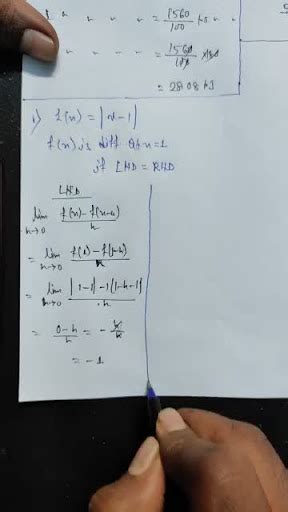 " " " " = 1560/100
= 1560/100 × 180
= 2808 kJ
1) f(x) = |x-1|
f(x) is diff at x=1
if LHD = RHD
LHD
lim h→0 f(x)-f(x-h)/h
= lim h→0 f(1)-f(1-h)/h
= lim h→0 |1-1|-|1-h-1|/h
= 0-h/h = -h/h
= -1